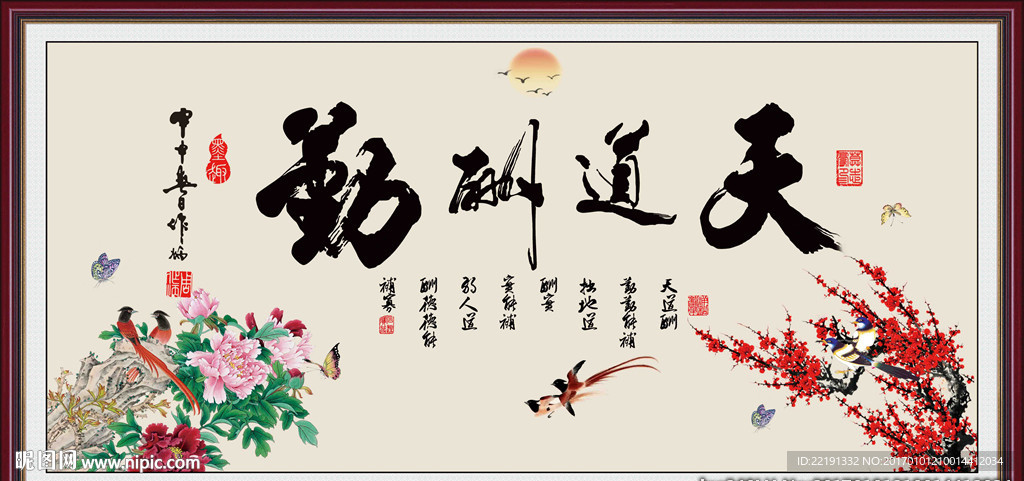 天道酬勤
天道酬
勤勤能補
拙地道
酬實
實能補
弱人道
酬德德能
補寡
甲申春日作
墨趣
昵图网 www.nipic.com
ID:22191332 NO:20170101210014412034